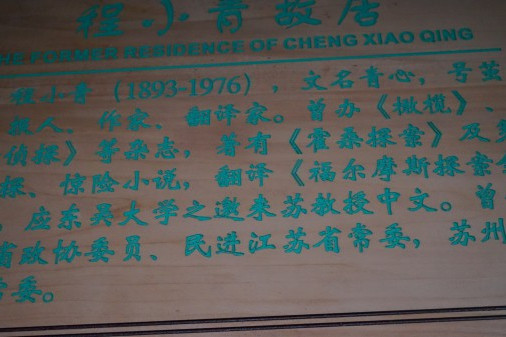 程小青故居
THE FORMER RESIDENCE OF CHENG XIAO QING
程小青（1893-1976），文名青心，号茧
报人、作家、翻译家。曾办《橄榄》、
侦探》等杂志，著有《霍桑探案》及
探、惊险小说，翻译《福尔摩斯探案全
，应东吴大学之邀来苏教授中文。曾
省政协委员、民进江苏省常委，苏州
常委。